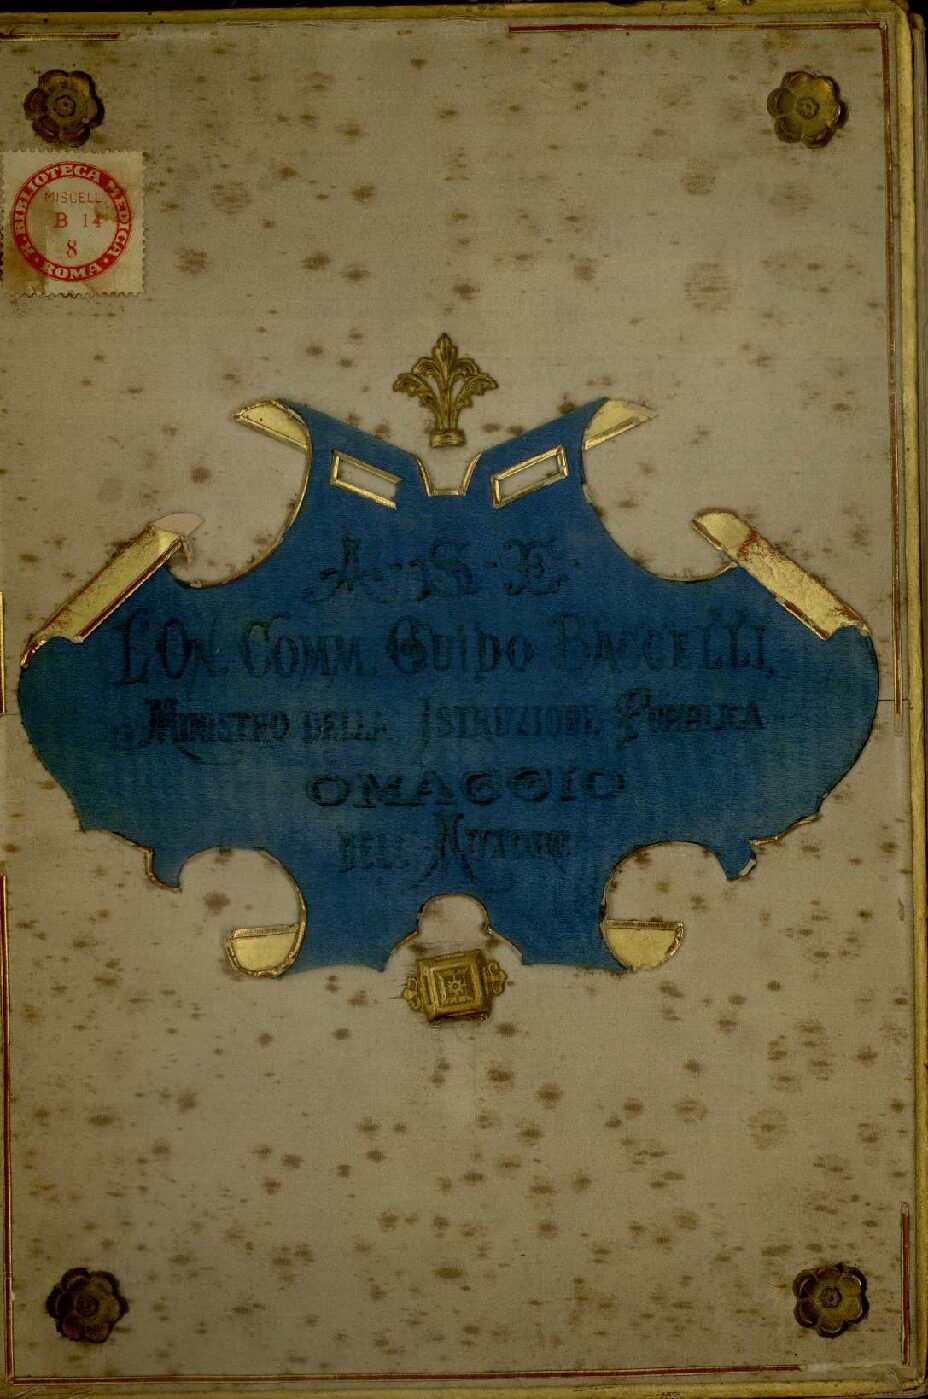 BIBLIOTECA MEDICA
MISCELL.
B 14
8
R. ROMA
A. S. E.
L'ON. COMM. GUIDO BACCELLI,
MINISTRO DELLA ISTRUZIONE PUBBLICA
OMAGGIO
DELL'AUTORE